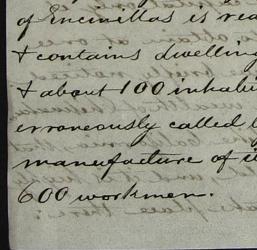 of Encinillas is rea
& contains dwelling
& about 100 inhabi
erroneously called
manufacture of
600 workmen.